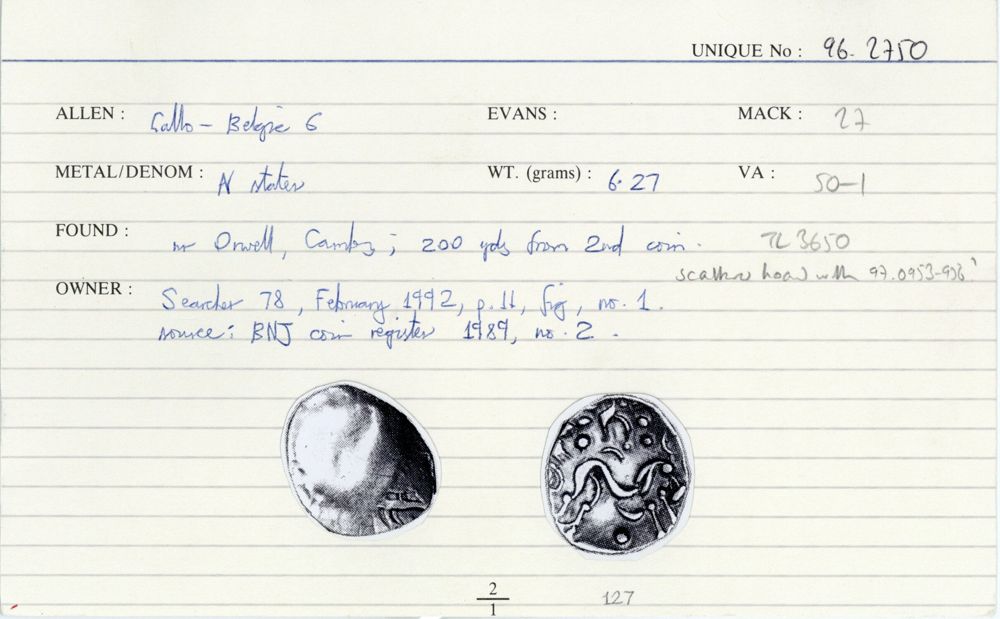 UNIQUE No : 96. 2750
ALLEN : Gallo - Belgic E EVANS : MACK : 27
METAL/DENOM : N stater WT. (grams) : 6.27 VA : 50-1
FOUND : nr Orwell, Cambs; 200 yds from 2nd coin. TL 3650
scattered hoard with 97.0953-956?
OWNER : Searcher 78, February 1992, p. 11, fig, no. 1.
source: BNJ coin register 1989, no. 2.
2
1
127